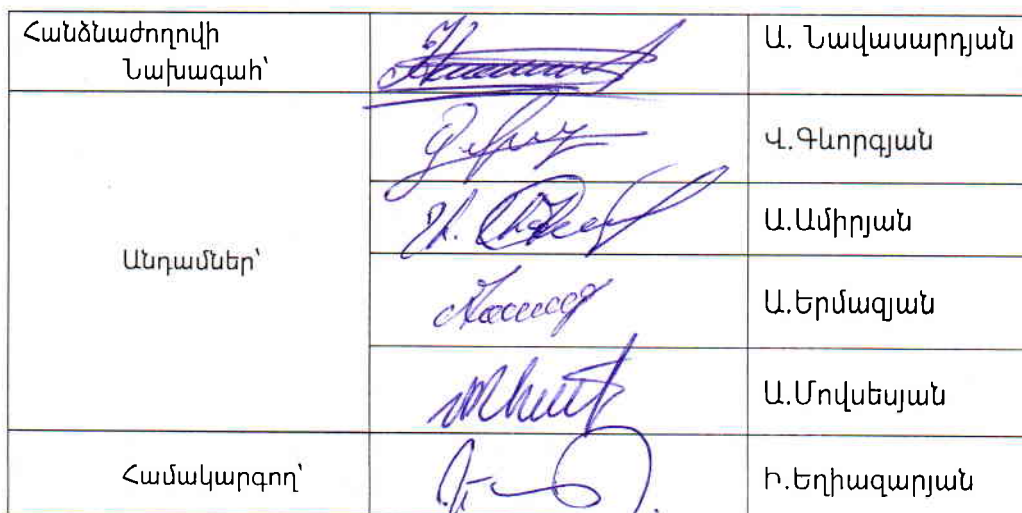 Հանձնաժողովի
Նախագահ՝
Ա. Նավասարդյան
Վ.Գևորգյան
Ա.Ամիրյան
Անդամներ՝
Ա.Երմազյան
Ա.Մովսեսյան
Համակարգող՝
Ի.Եղիազարյան